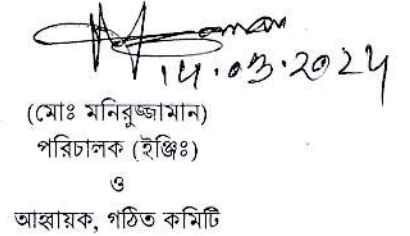 14.03.2024
(মোঃ মনিরুজ্জামান)
পরিচালক (ইঞ্জিঃ)
ও
আহ্বায়ক, গঠিত কমিটি